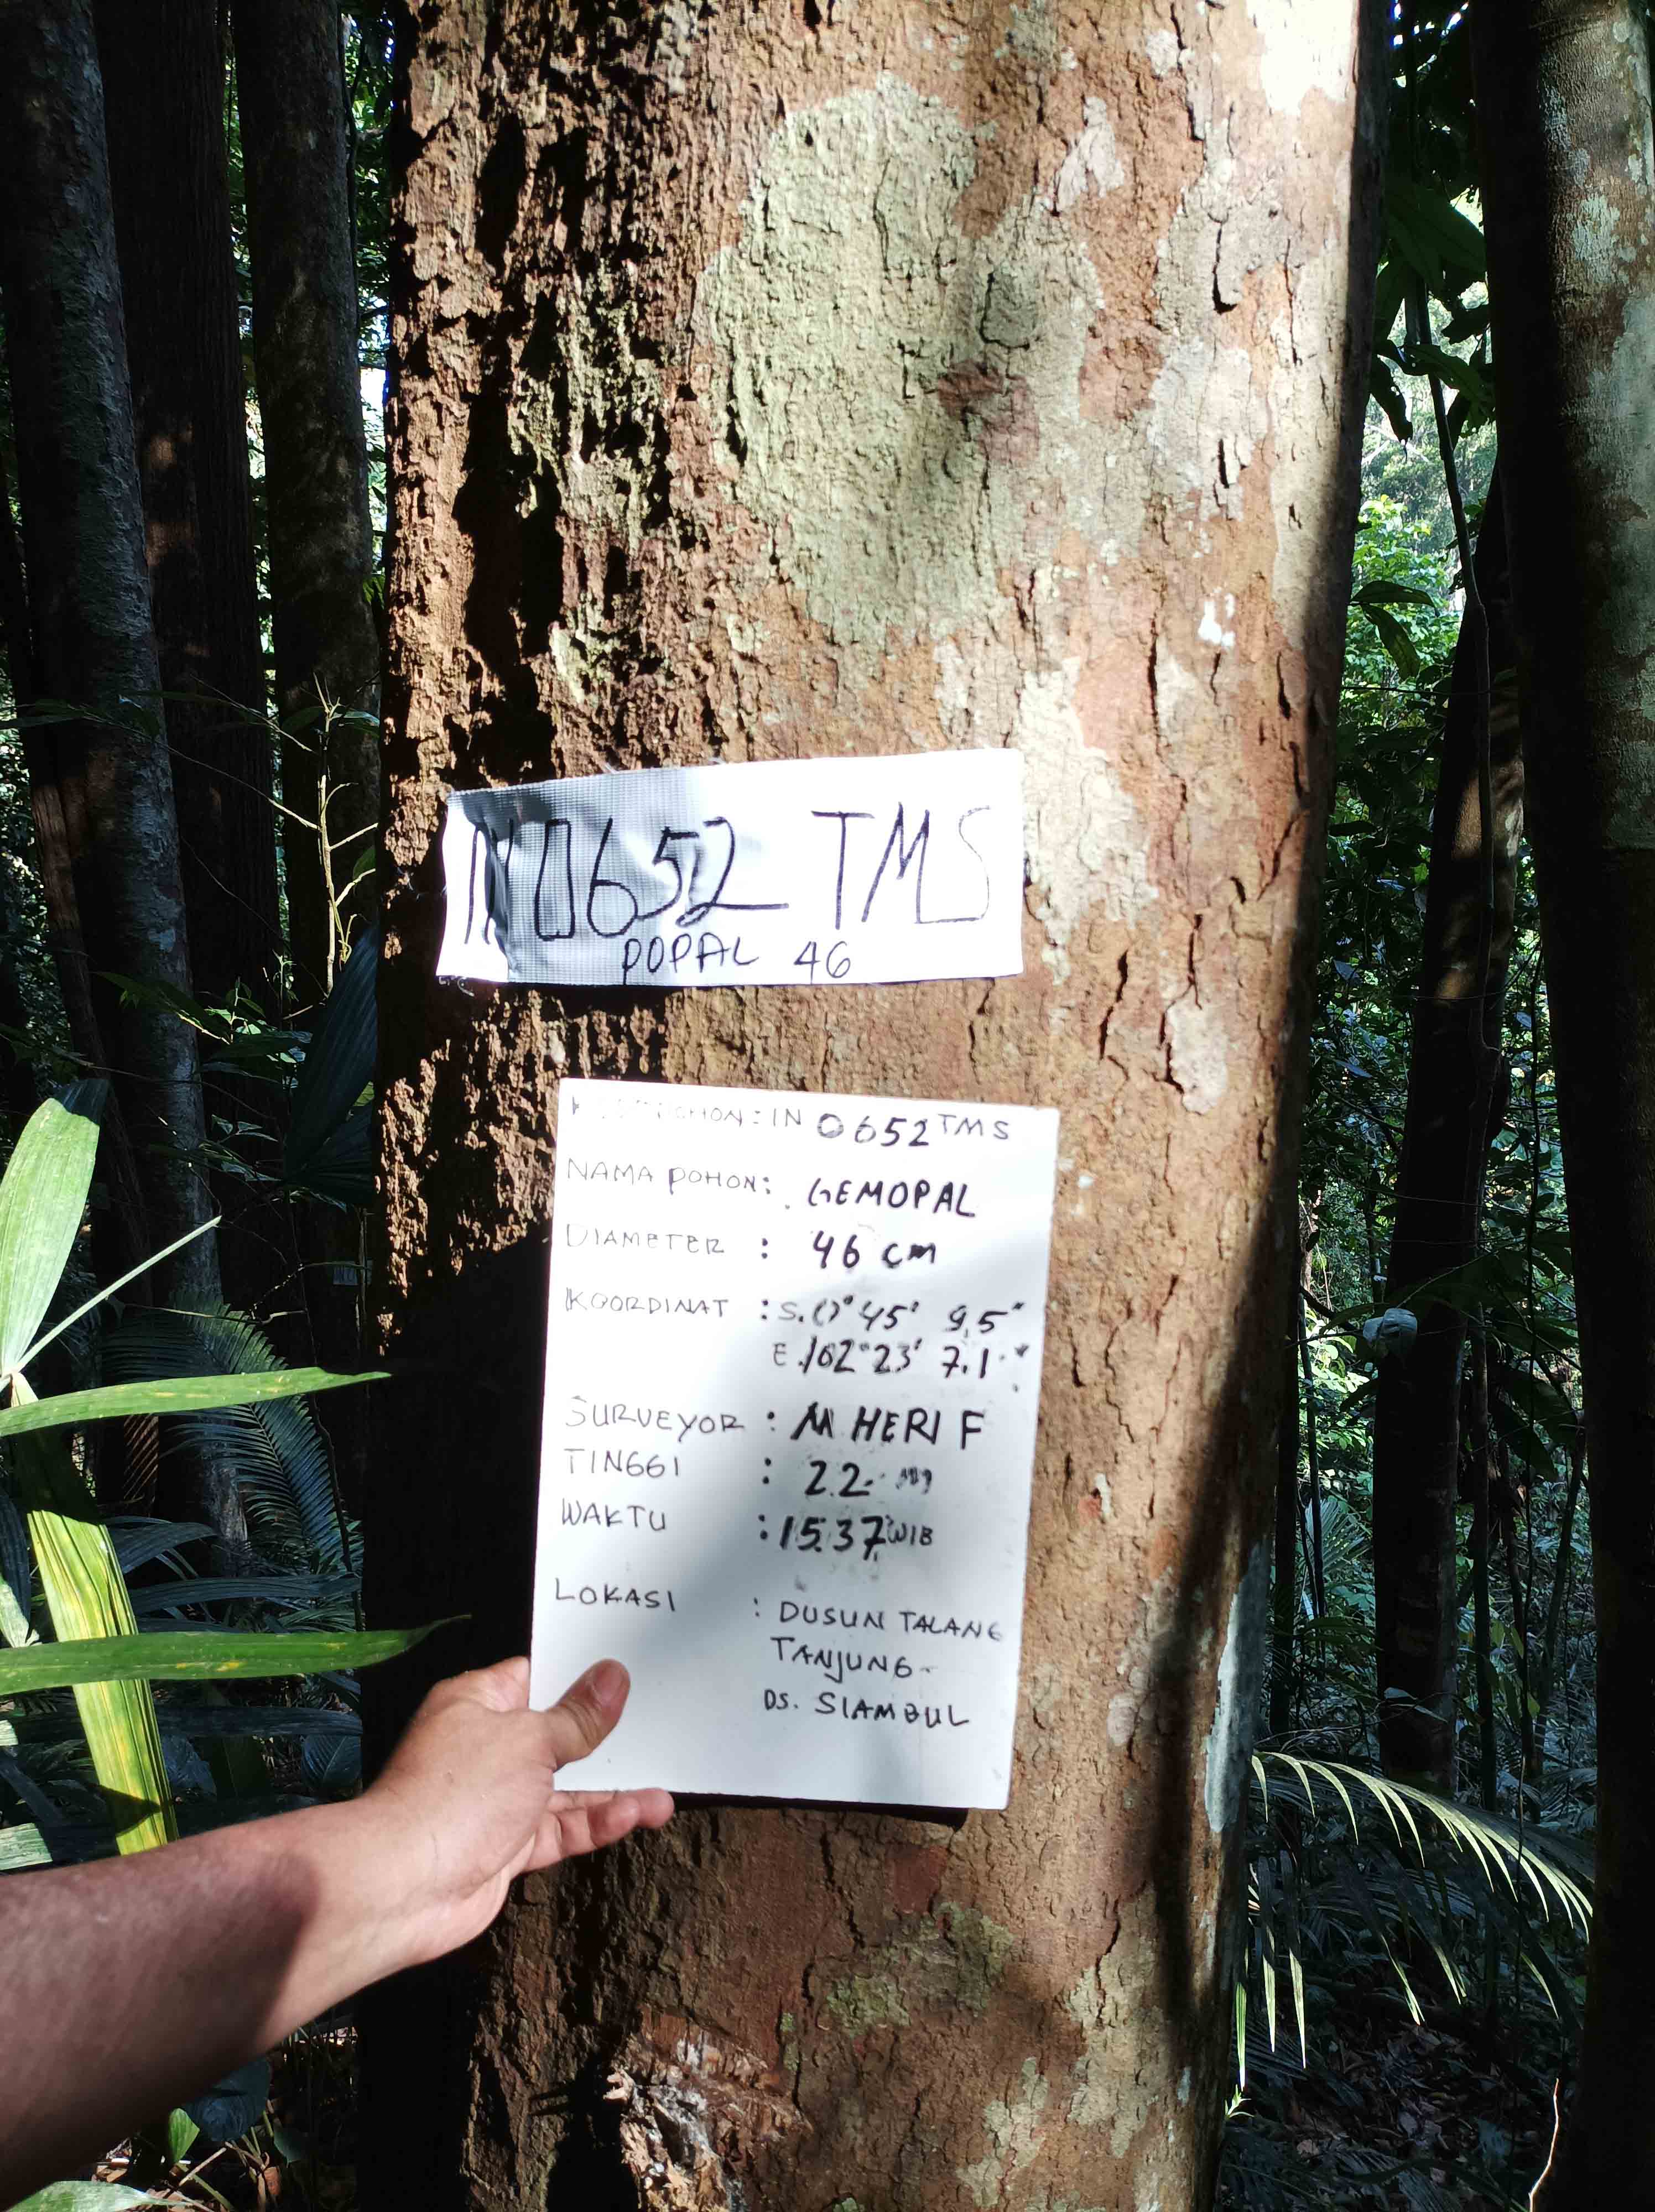 IN 0652 TMS
POPAL 46
POHON : IN 0652 TMS
NAMA POHON : GEMOPAL
DIAMETER : 46 cm
KOORDINAT : S. 0° 45' 9,5"
E. 102° 23' 7.1"
SURVEYOR : M HERI F
TINGGI : 22 m
WAKTU : 15.37 WIB
LOKASI : DUSUN TALANG
TANJUNG-
DS. SIAMBUL